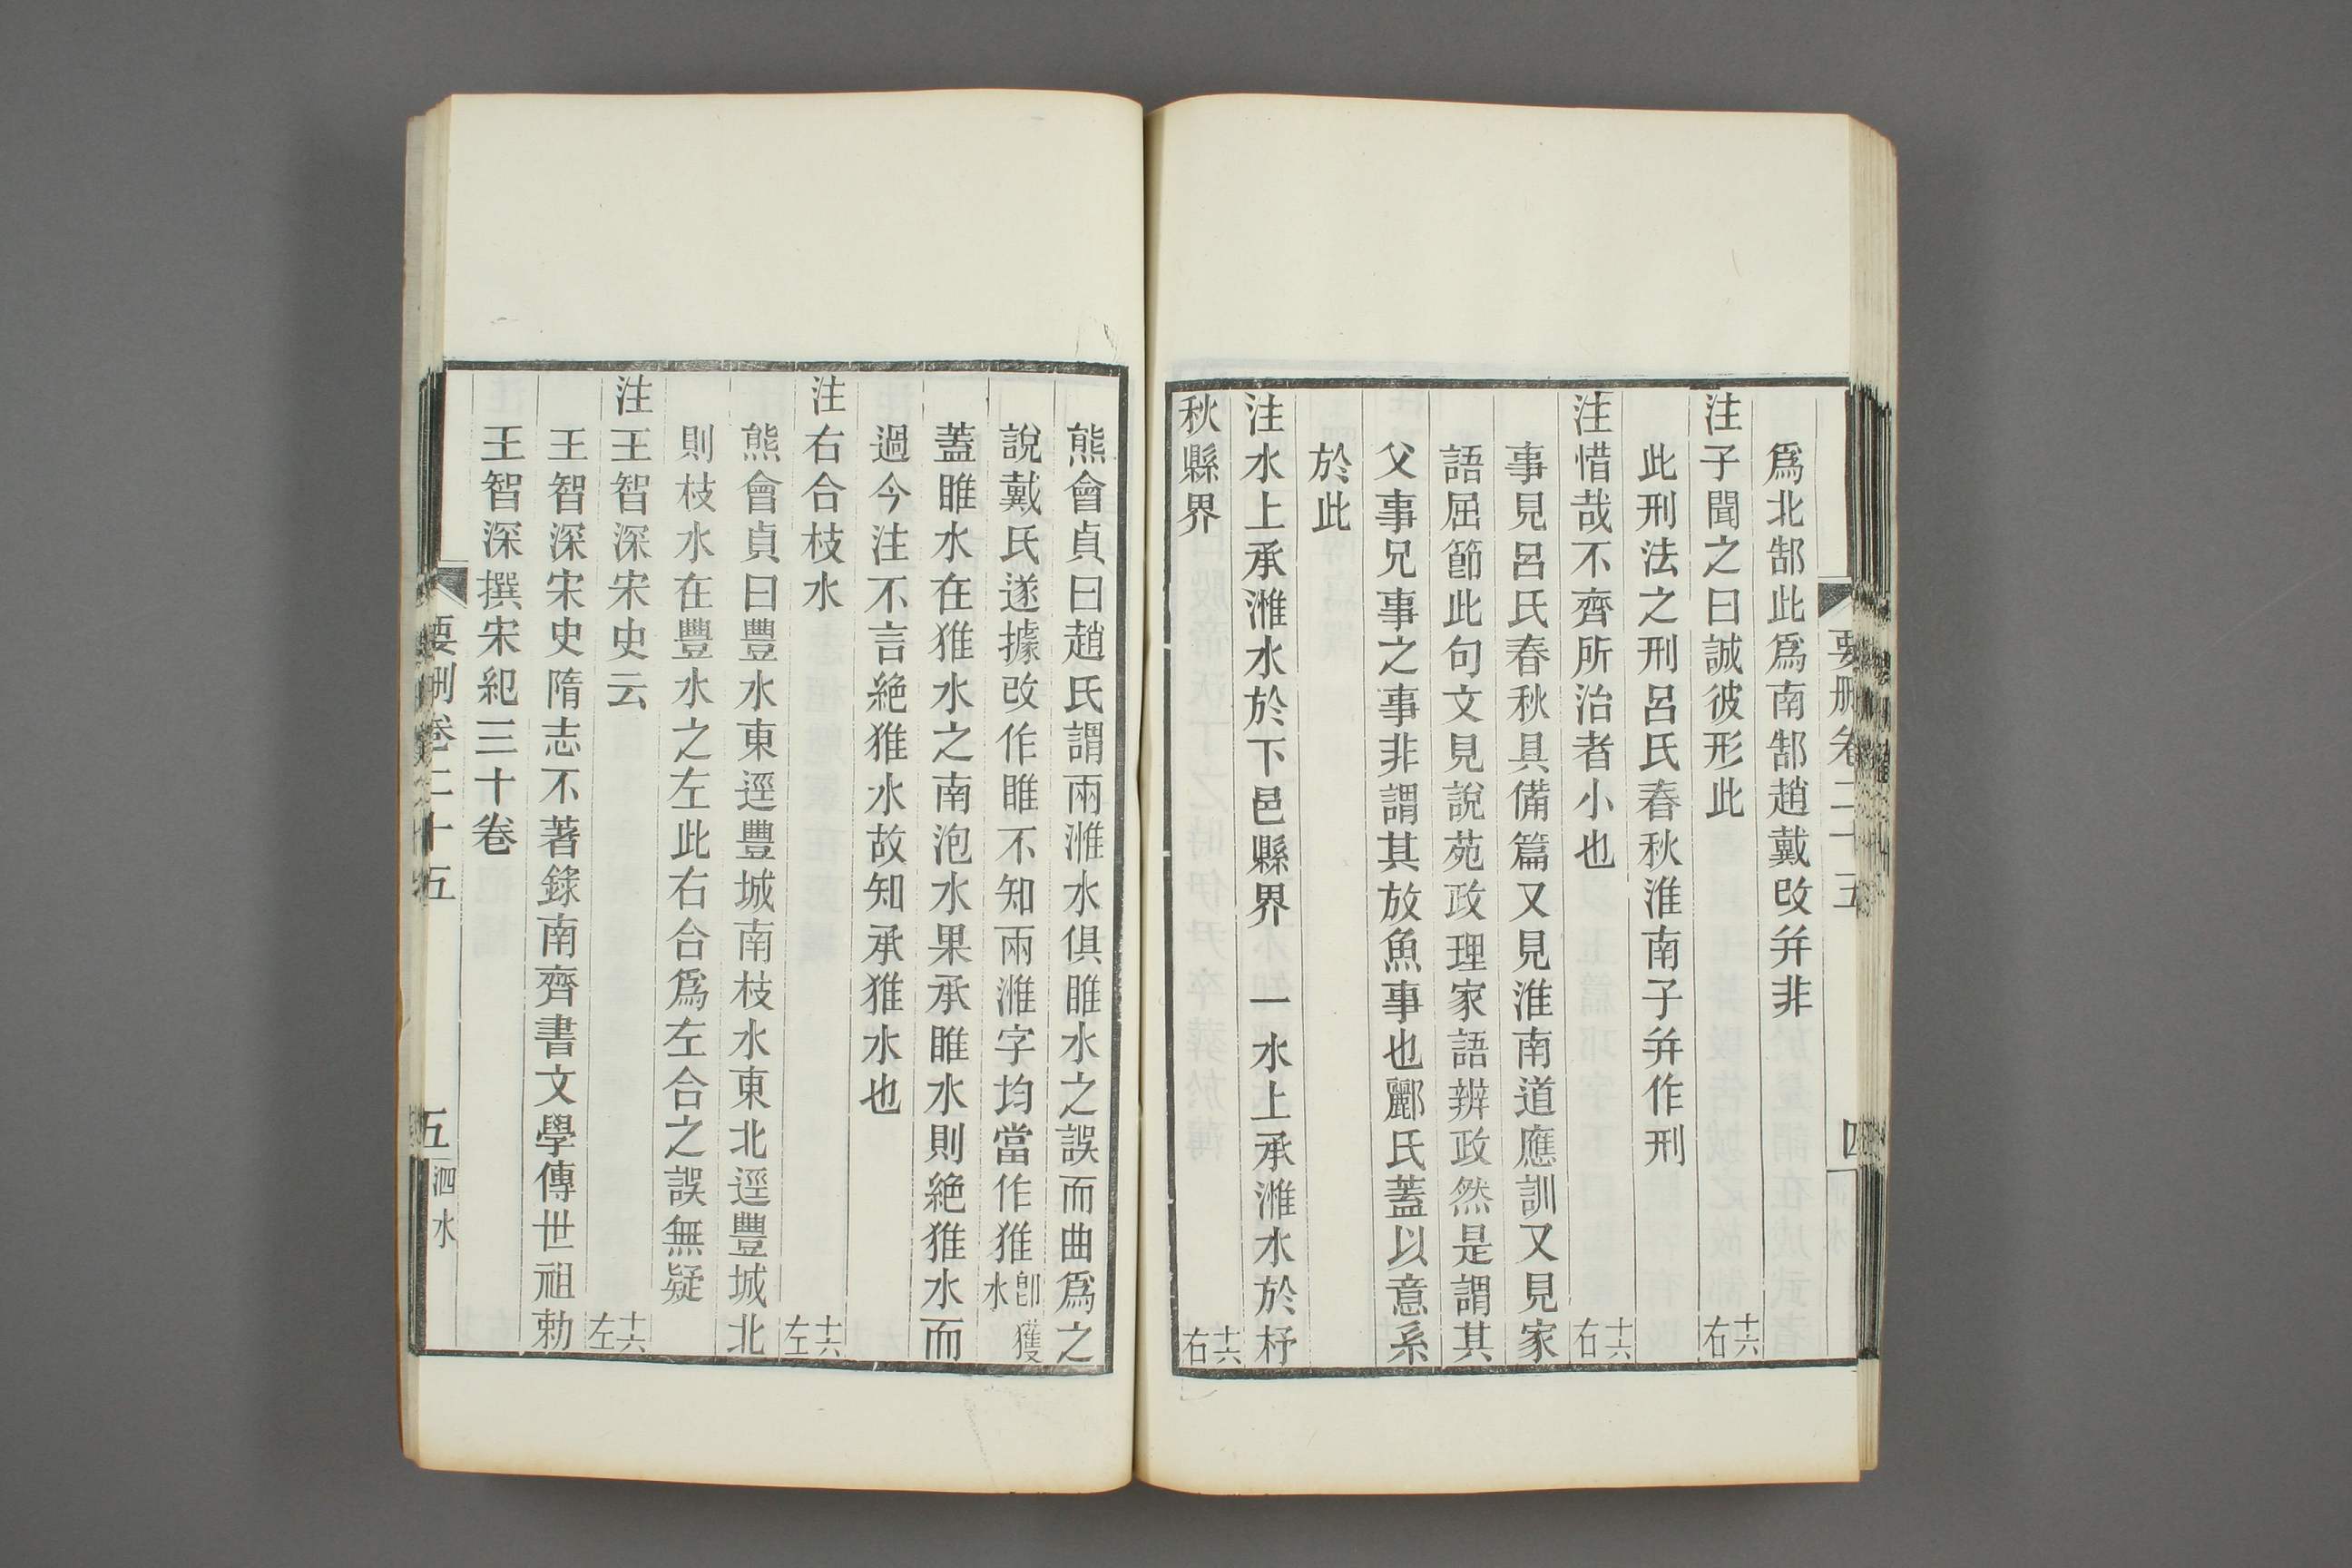 要刪卷二十五
四
爲北郜此爲南郜趙戴改并非
注子聞之曰誠彼形此十六右
此刑法之刑呂氏春秋淮南子并作刑
注惜哉不齊所治者小也十六右
事見呂氏春秋具備篇又見淮南道應訓又見家
語屈節此句文見說苑政理家語辨政然是謂其
父事兄事之事非謂其放魚事也酈氏蓋以意系
於此
注水上承濉水於下邑縣界　一水上承濉水於杼
秋縣界十六右
熊會貞曰趙氏謂兩濉水俱睢水之誤而曲爲之
說戴氏遂據改作睢不知兩濉字均當作獾卽獲水
蓋睢水在獾水之南泡水果承睢水則絶獾水而
過今注不言絶獾水故知承獾水也
注右合枝水十六左
熊會貞曰豐水東逕豐城南枝水東北逕豐城北
則枝水在豐水之左此右合爲左合之誤無疑
注王智深宋史云十六左
王智深宋史隋志不著錄南齊書文學傳世祖勅
王智深撰宋紀三十卷
要刪卷二十五
五
泗水